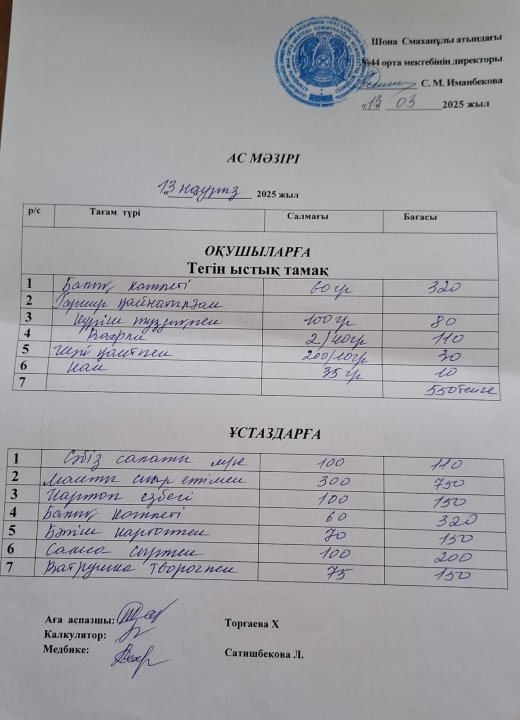 Шона Смаханұлы атындағы
№44 орта мектебінің директоры
С. М. Иманбекова
«13» 03 2025 жыл
АС МӘЗІРІ
«13 наурыз 2025 жыл
р/с Тағам түрі Салмағы Бағасы
ОҚУШЫЛАРҒА
Тегін ыстық тамақ
1 Балық котлеті 60 гр 320
2 Гарнир қайнатылған
3 күріш тұздықпен 100 гр 80
4 Вафли 2/40гр 110
5 Шәй қантпен 200/10гр 30
6 Нан 35 гр 10
7 550 тенге
ҰСТАЗДАРҒА
1 Сәбіз салаты 100 110
2 Манты сиыр етімен 300 750
3 Картоп езбегі 100 150
4 Балық котлеті 60 320
5 Бәліш картоппен 70 150
6 Самса сырмен 100 200
7 Ватрушка творогпен 75 150
Аға аспазшы: Торғаева Х
Калкулятор:
Медбике: Сатишбекова Л.